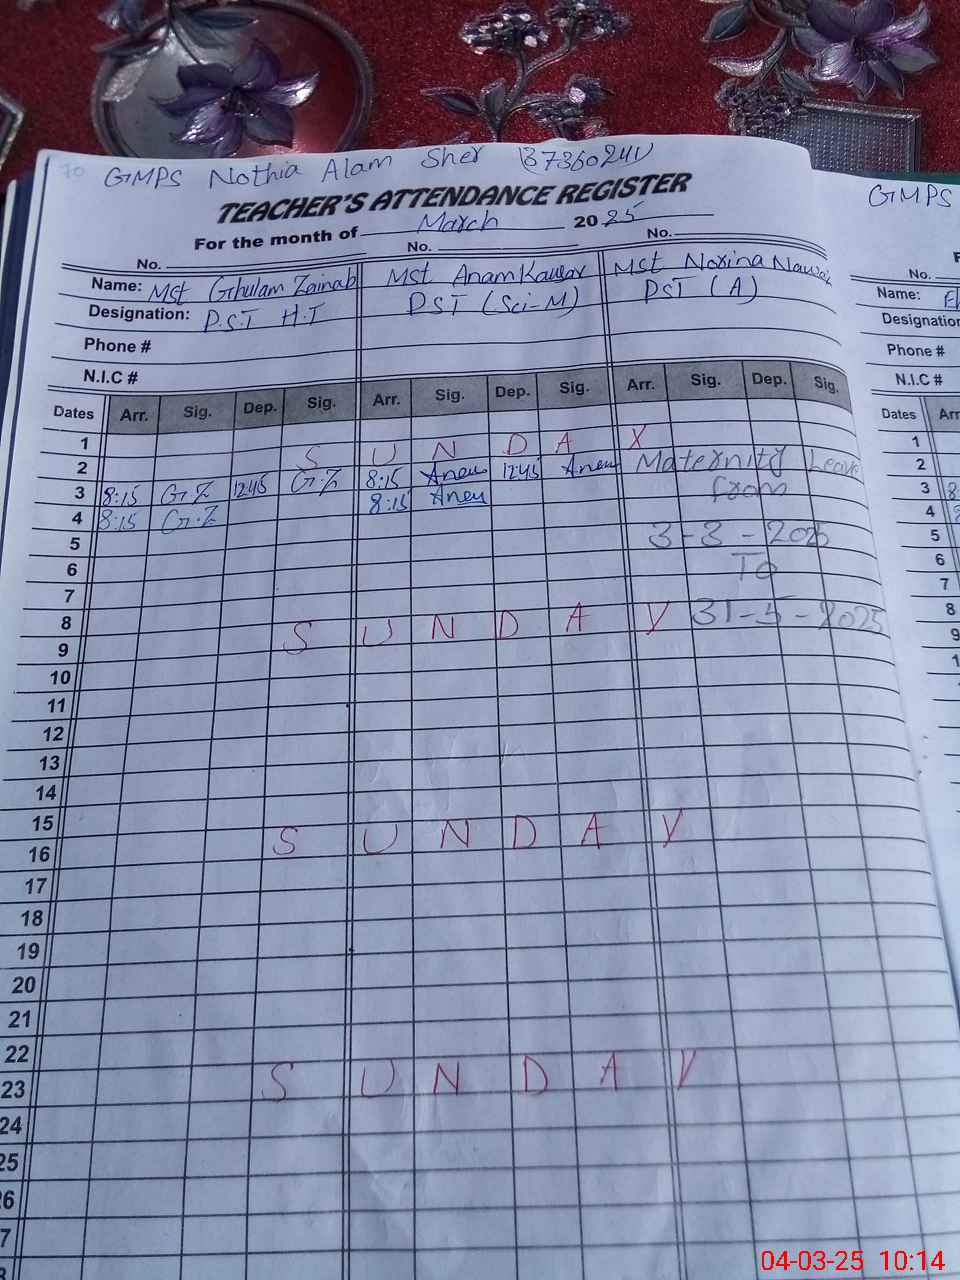 70 GMPS Nothia Alam Sher (37360241)
GMPS
TEACHER'S ATTENDANCE REGISTER
For the month of March 2025
No. No. No. No.
Name: Mst Ghulam Zainab Mst Anam Kausar Mst Noxina Name:
Designation: P.S.T H.T PST (Sci-M) PST (A) Designation
Phone # Phone #
N.I.C # N.I.C #
Dates Arr. Sig. Dep. Sig. Arr. Sig. Dep. Sig. Arr. Sig. Dep. Sig. Dates Arr
1 1
2 S U N D A Y 2
3 8:15 G.Z 12:45 G.Z 8:15 Anam 12:45 Anam Maternity Leave 3 8
4 8:15 G.Z 8:15 Anam from 4 8
5 3-3-2025 5
6 To 6
7 7
8 31-5-2025 8
9 S U N D A Y 9
10 1
11
12
13
14
15
16 S U N D A Y
17
18
19
20
21
22
23 S U N D A Y
24
25
26
7
04-03-25 10:14